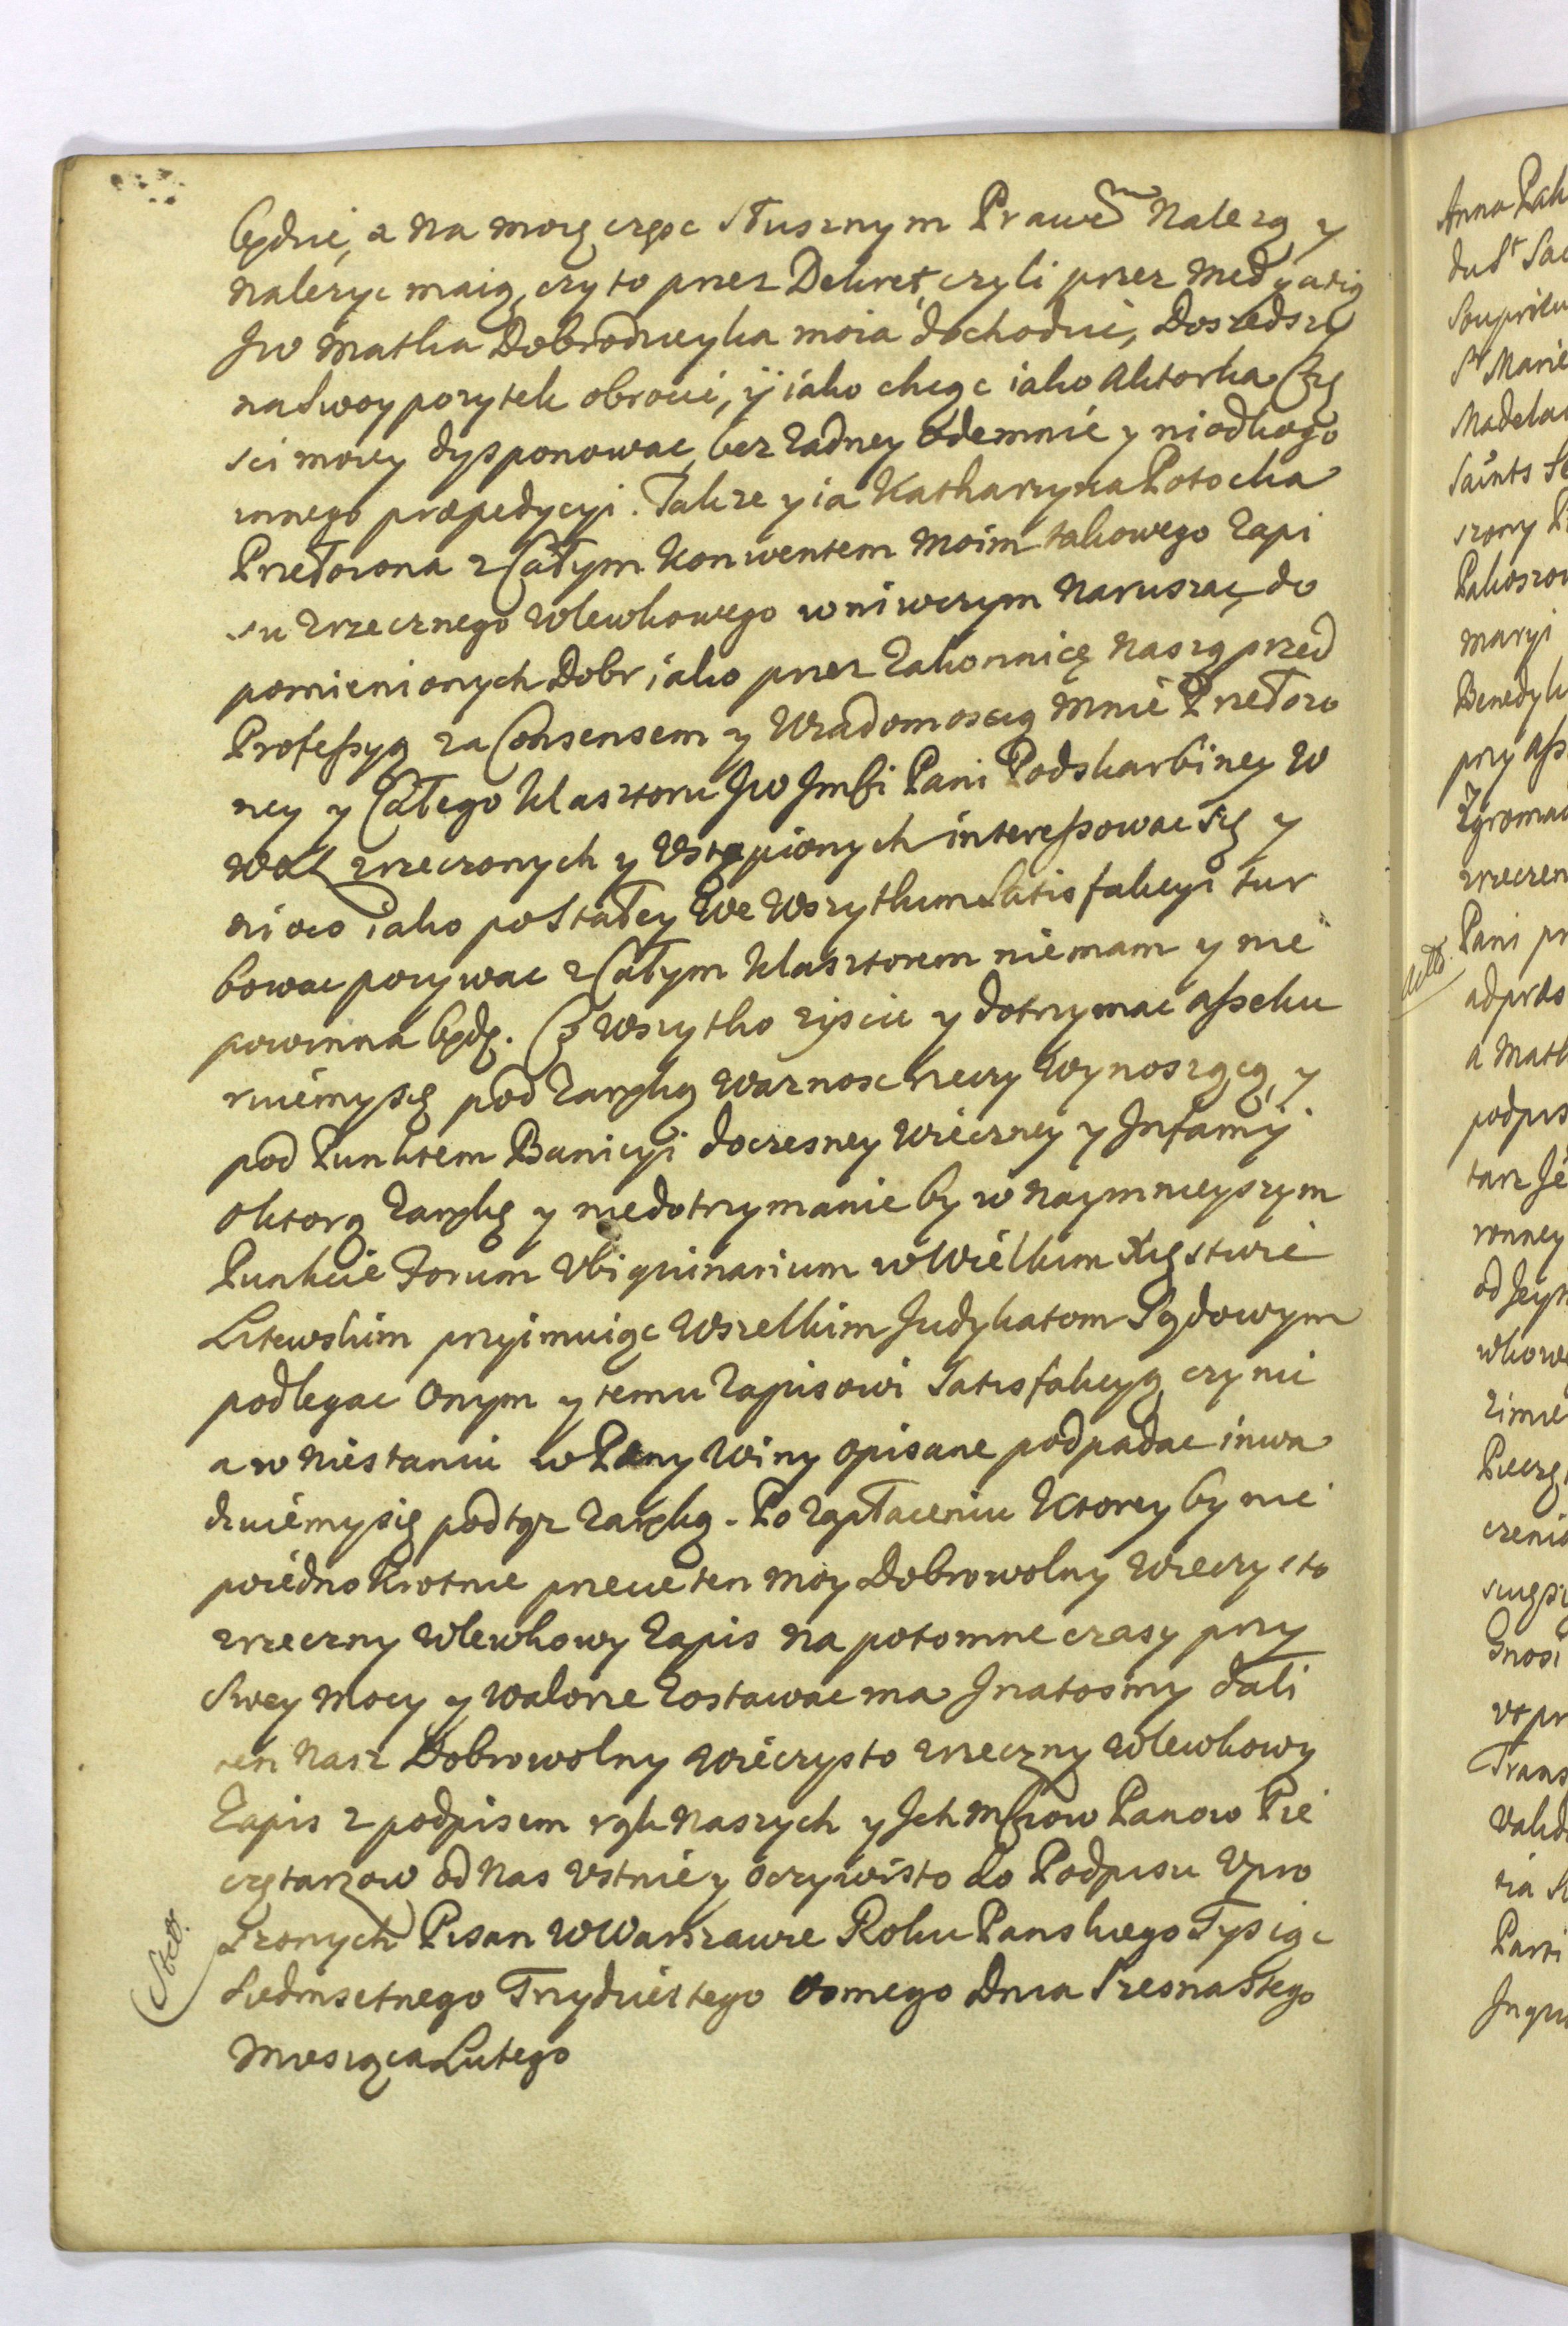 będzie, a na moię częsc słusznym Prawem Nalezą y
nalezyc maią, czy to przez Dekret, czyli przez Medyatią
Jw Matka Dobrodzieyka moia dochodzic, Doszedszy
na Swoy pozytek obrocic, ÿ iako chcąc iako Aktorka Czę
sci moiey dysponowac, bez zadney odemnie y ni od kogo
innego præpedycyi. Takze y ia Katharzyna Potocka
Przełozona z Całym Konwentem Moim takowego Zapi
su zrzecznego Wlewkowego w niwczym Naruszac, do
pomienionych Dobr iako przez Zakonnicę Naszą przed
Professyą za Consensem y Wiadomoscią Mnie Przełozo
ney y Całego Klasztoru Jw Jmsci Pani Podskarbiney W
WXL zrzeczonych y Vstąpionych interessowac Się y
oi oco iako po Stałey We Wszytkim Satisfakcyi tur
bowac pozywac z Całym Klasztorem nie mam y nie
powinna będę. Co Wszytko ziscic y dotrzymac asseku
ruiemy się pod Zaręką Waznosc rzeczy Wynoszącą, y
pod Punktem Banicyi doczesney Wieczney y Jnfamÿi
o ktorą Zarękę y niedotrzymanie by w Naymnieyszym
Punkcie Forum Vbiquinarium w Wielkim Xięstwie
Litewskim przyimuiąc Wszelkim Judykatom Sądowym
podlegac Onym y temu Zapisowi Satisfakcyą czynic
a w Niestaniu w Pæny Winy Opisane podpadac inwa
duiemy się pod tąz Zaręką. Po Zapłaceniu Ktorey by nie
poiedno Krotnie przecie ten moy Dobrowolny Wieczysto
zrzeczny Wlewkowy Zapis Na potomne czasy przy
Swey Mocy y Walorze Zostawac ma Jnatosmy dali
ten Nasz Dobrowolny Wieczysto zrzeczny Wlewkowy
Zapis z podpisem rąk Naszych y Jch Mściow Panow Pie
czętarzow od Nas Vstnie y Oczywisto do Podpisu Vpro
szonych Pisan w Warszawie Roku Panskiego Tysiąc
Siedmsetnego Trzydziestego osmego Dnia Szesnastego
Miesiąca Lutego
Anna Pak
du St Sac
St Marie
Saints
szony
Pakoszow
Maryi
Benedyk
przy
Zgromad
zrzeczen
Pani pr
a Matk
podpis
ronney
wkowe
Pieczę
Gnosi
Trans
Valid
tia
Parti